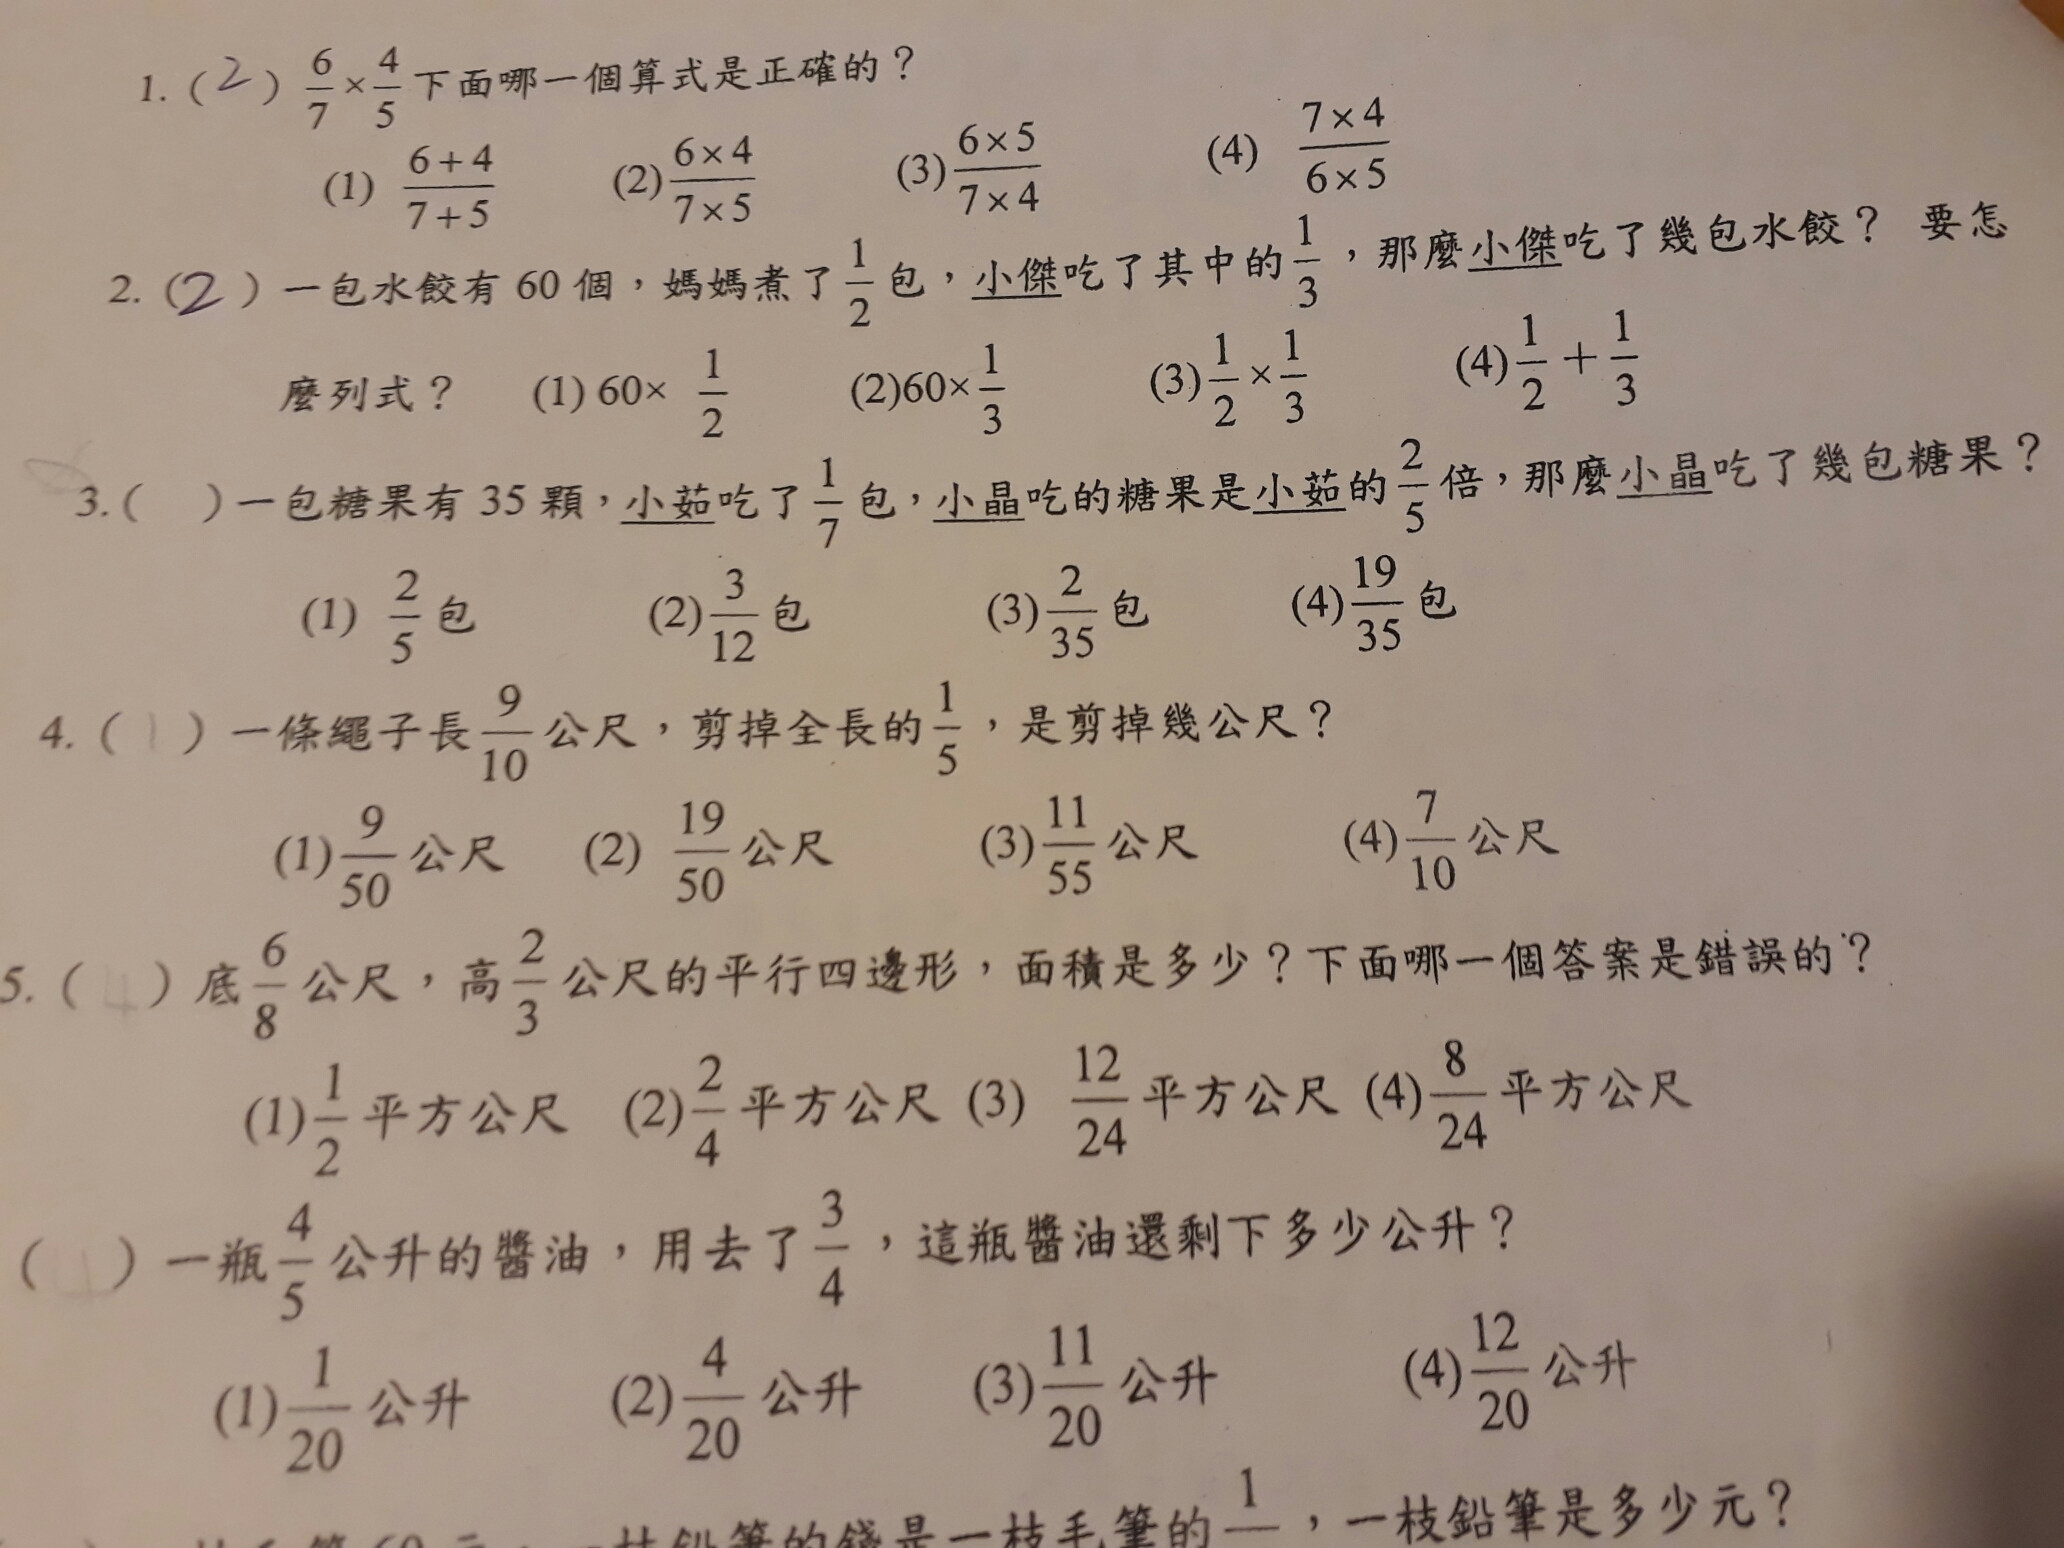 1. (2) 6/7 × 4/5 下面哪一個算式是正確的？
(1) (6+4)/(7+5) (2) (6×4)/(7×5) (3) (6×5)/(7×4) (4) (7×4)/(6×5)
2. (2) 一包水餃有 60 個，媽媽煮了 1/2 包，小傑吃了其中的 1/3，那麼小傑吃了幾包水餃？ 要怎
麼列式？ (1) 60× 1/2 (2) 60× 1/3 (3) 1/2 × 1/3 (4) 1/2 + 1/3
3. ( ) 一包糖果有 35 顆，小茹吃了 1/7 包，小晶吃的糖果是小茹的 2/5 倍，那麼小晶吃了幾包糖果？
(1) 2/5 包 (2) 3/12 包 (3) 2/35 包 (4) 19/35 包
4. (1) 一條繩子長 9/10 公尺，剪掉全長的 1/5，是剪掉幾公尺？
(1) 9/50 公尺 (2) 19/50 公尺 (3) 11/55 公尺 (4) 7/10 公尺
5. (4) 底 6/8 公尺，高 2/3 公尺的平行四邊形，面積是多少？下面哪一個答案是錯誤的？
(1) 1/2 平方公尺 (2) 2/4 平方公尺 (3) 12/24 平方公尺 (4) 8/24 平方公尺
( ) 一瓶 4/5 公升的醬油，用去了 3/4，這瓶醬油還剩下多少公升？
(1) 1/20 公升 (2) 4/20 公升 (3) 11/20 公升 (4) 12/20 公升
的錢是一枝毛筆的 1，一枝鉛筆是多少元？